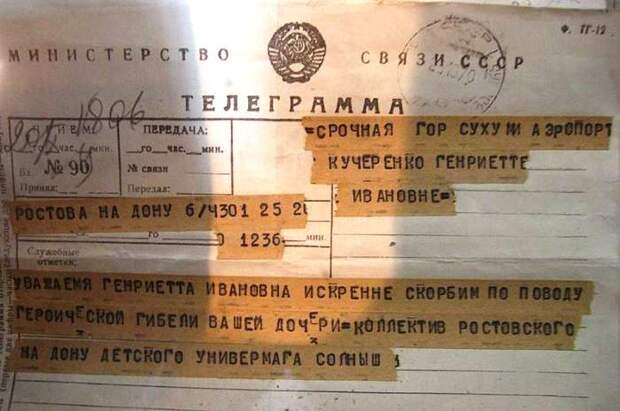 Ф. ТГ-12
МИНИСТЕРСТВО СВЯЗИ СССР
ТЕЛЕГРАММА
1896
ПЕРЕДАЧА:
го час. мин.
го час. мин.
№ 90
№ связи
Передал:
=СРОЧНАЯ ГОР СУХУМИ АЭРОПОРТ
КУЧЕРЕНКО ГЕНРИЕТТЕ
ИВАНОВНЕ=
РОСТОВА НА ДОНУ 6/Ч301 25 2
го 1236 мин.
Служебные
отметки:
УВАЖАЕМЯ ГЕНРИЕТТА ИВАНОВНА ИСКРЕННЕ СКОРБИМ ПО ПОВОДУ
ГЕРОИЧЕСКОЙ ГИБЕЛИ ВАШЕЙ ДОЧЕРИ=КОЛЛЕКТИВ РОСТОВСКОГО
НА ДОНУ ДЕТСКОГО УНИВЕРМАГА СОЛНЫШ